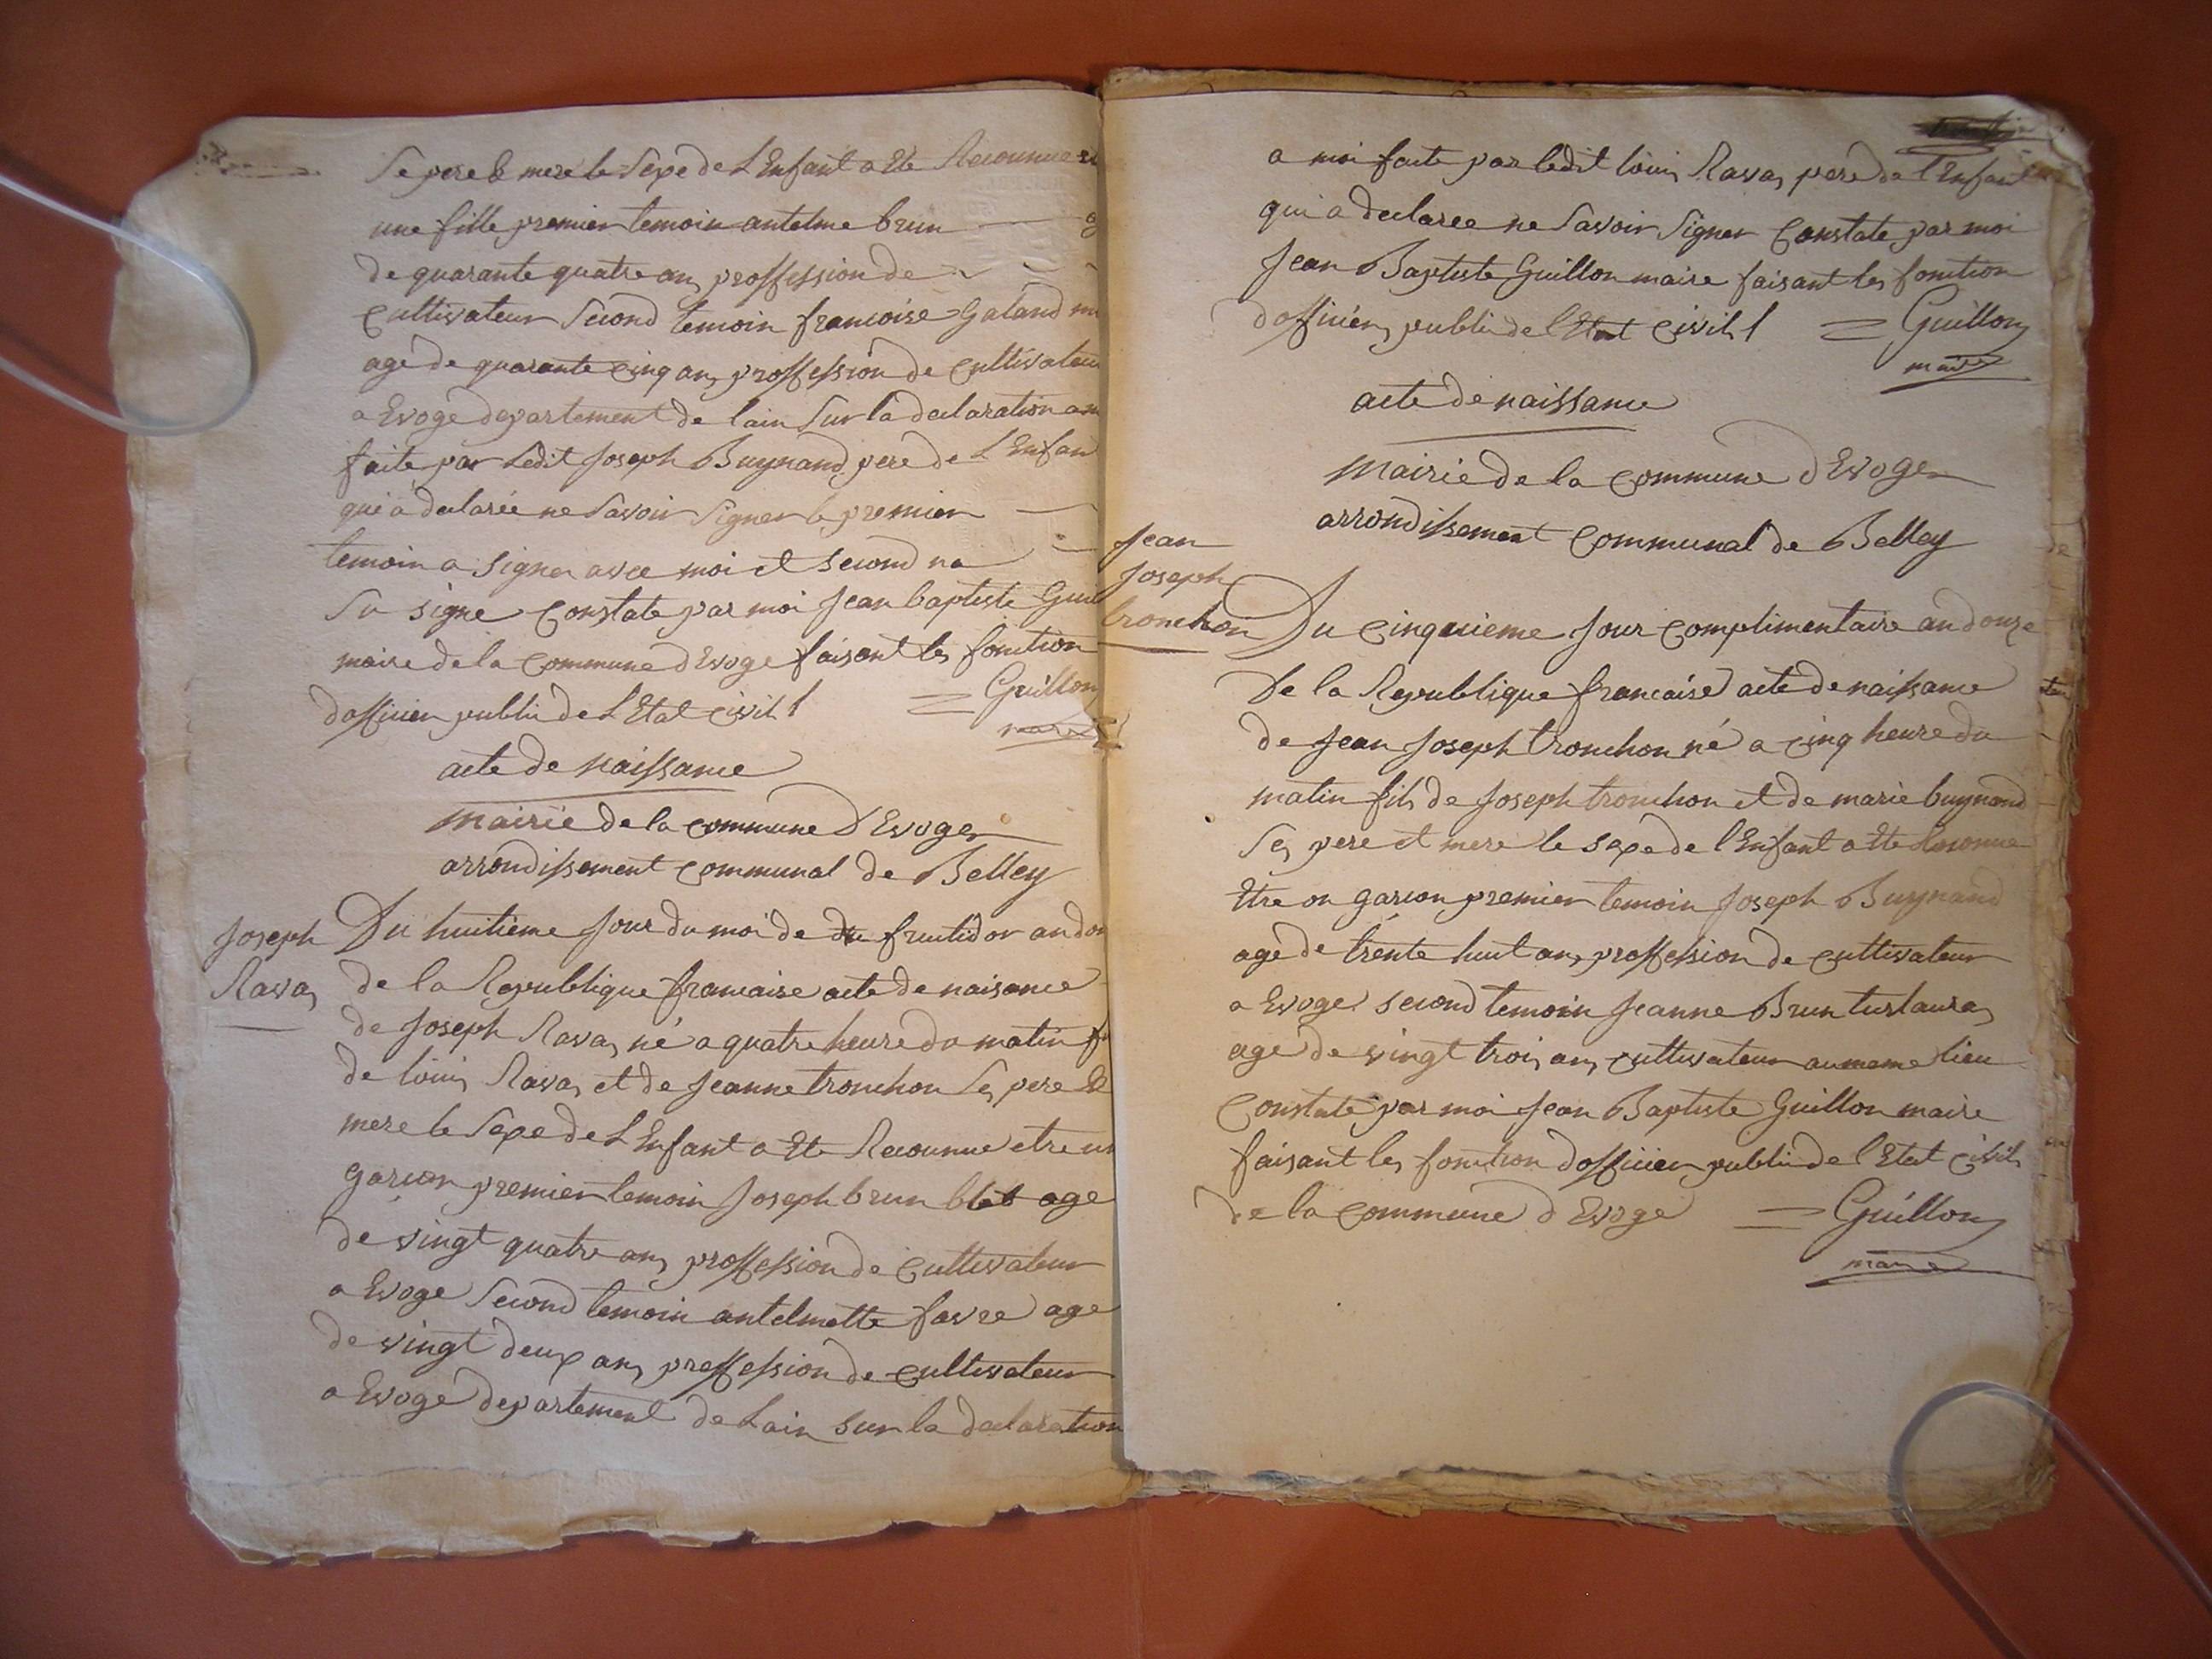 Se pere & mere le Sexe de L Enfant a Ete Reconnue
une fille premier temoin antelme brun
de quarante quatre ans proffession de
Cultivateur Second temoin francoise Galand
age de quarante Cinq ans proffession de Cultivateu
a Evoge departement de lain Sur la declaration a m
faite par Ledit Joseph Buynand pere de L Enfan
qui a declarée ne Savoir Signer le premier
temoin a signer avec moi et second na
Su signe Constate par moi Jean baptiste Guil
maire de la Commune d Evoge faisant les fonction
dofficier public de L Etat Civil = Guillon
maire
acte de naissance
Mairie de la commune d Evoges
arrondissement Communal de Belley
Joseph
Ravas
Du huitieme Jour du moi de fructidor an dou
de la Republique francaise acte de naisance
de Joseph Ravas né a quatre heure du matin fi
de louis Ravas et de Jeanne tronchon Ses pere &
mere le Sexe de L Enfant a Ete Reconnue etre un
garcon premier temoin Joseph brun blet age
de vingt quatre ans proffession de Cultivateur
a Evoge Second temoin antelmette favre age
de vingt deux ans proffession de Cultivateur
a Evoge departement de Lain sur la declaration
a moi faite par ledit louis Ravas pere de l Enfant
qui a declaree ne Savoir Signer Constate par moi
Jean Baptiste Guillon maire faisant les fonction
dofficiers public de l Etat Civil = Guillon
maire
acte de naissance
Mairie de la Commune d Evoges
arrondissement Communal de Belley
Jean
Joseph
tronchon
Du Cinquieme Jour Complimentaire an douze
De la Republique francaise acte de naissance
de Jean Joseph tronchon né a Cinq heure du
matin fils de Joseph tronchon et de marie buynand
Ses pere et mere le sexe de l Enfant a Ete Reconnue
Etre on garcon premier temoin Joseph Buynand
age de trente huit ans proffession de Cultivateur
a Evoge second temoin Jeanne Brun
age de vingt trois ans Cultivateur au meme lieu
Constate par moi Jean Baptiste Guillon maire
faisant les fonction dofficier public de l Etat Civil
de la Commune d Evoge = Guillon
maire